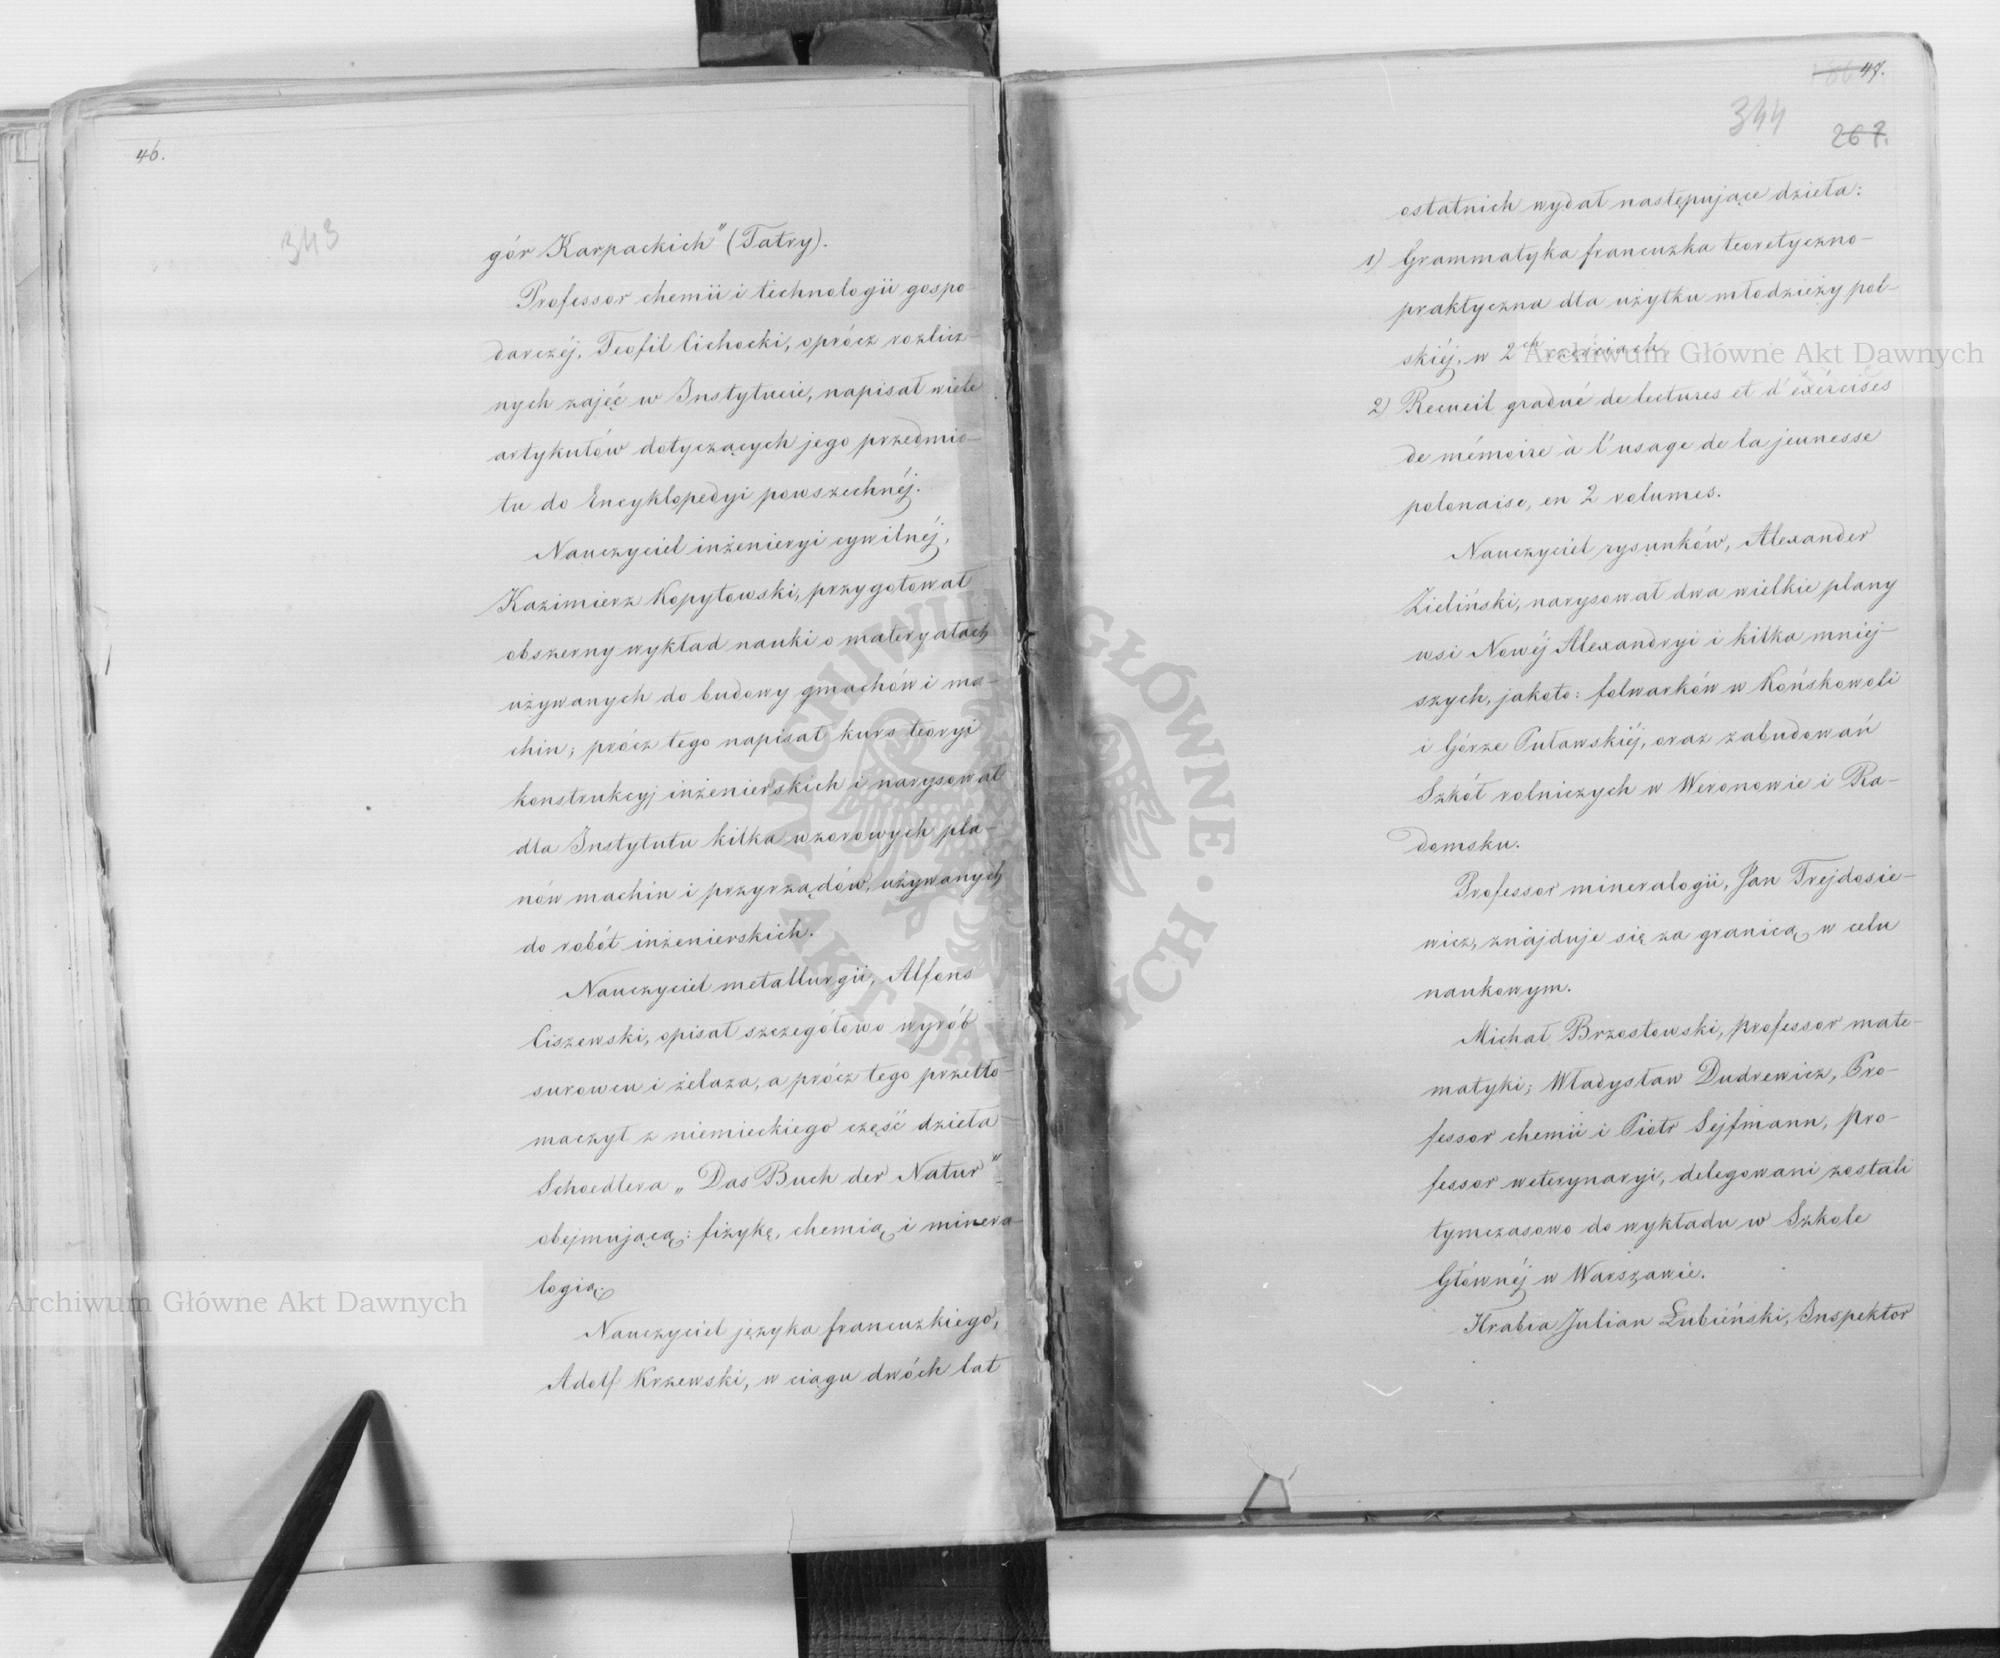 46.
343
gór Karpackich" (Tatry).
Professor chemii i technologii gospo-
darczéj, Teofil Cichocki, oprócz rozlicz-
nych zajęć w Instytucie, napisał wiele
artykułów dotyczących jego przedmio-
tu do Encyklopedyi powszechnéj.
Nauczyciel inżenieryi cywilnéj,
Kazimierz Kopytowski, przygotował
obszerny wykład nauki o materyałach
używanych do budowy gmachów i ma-
chin; prócz tego napisał kurs teoryi
konstrukcyj inżenierskich i narysował
dla Instytutu kilka wzorowych pla-
nów machin i przyrządów, używanych
do robót inżenierskich.
Nauczyciel metallurgii, Alfons
Ciszewski, opisał szczegółowo wyrób
surowcu i żelaza, a prócz tego przetło-
maczył z niemieckiego część dzieła
Schoedlera „Das Buch der Natur"
obejmującą: fizykę, chemią i minera-
logią.
Nauczyciel języka francuzkiego,
Adolf Krzewski, w ciągu dwóch lat
47.
344
267.
ostatnich wydał następujące dzieła:
1) Grammatyka francuzka teoretyczno-
praktyczna dla użytku młodzieży pol-
skiéj, w 2ch częściach.
2) Recueil gradué de lectures et d'éxércises
de mémoire à l'usage de la jeunesse
polonaise, en 2 volumes.
Nauczyciel rysunków, Alexander
Zieliński, narysował dwa wielkie plany
wsi Nowéj Alexandryi i kilka mniej-
szych, jakoto: folwarków w Końskowoli
i Górze Puławskiéj, oraz zabudowań
Szkół rolniczych w Weronowie i Ra-
domsku.
Professor mineralogii, Jan Trejdosie-
wicz, znajduje się za granicą w celu
naukowym.
Michał Brzostowski, professor mate-
matyki; Władysław Dudrewicz, Pro-
fessor chemii i Piotr Sejfmann, pro-
fessor weterynaryi, delegowani zostali
tymczasowo do wykładu w Szkole
Głównéj w Warszawie.
Hrabia Julian Łubieński, Inspektor
Archiwum Główne Akt Dawnych
Archiwum Główne Akt Dawnych
ARCHIWUM GŁÓWNE AKT DAWNYCH